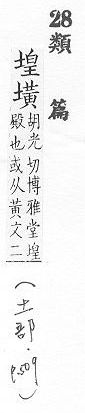 28類
篇
堭㙵胡光切博雅堂堭
殿也或从黃文二
（土部．p.509）